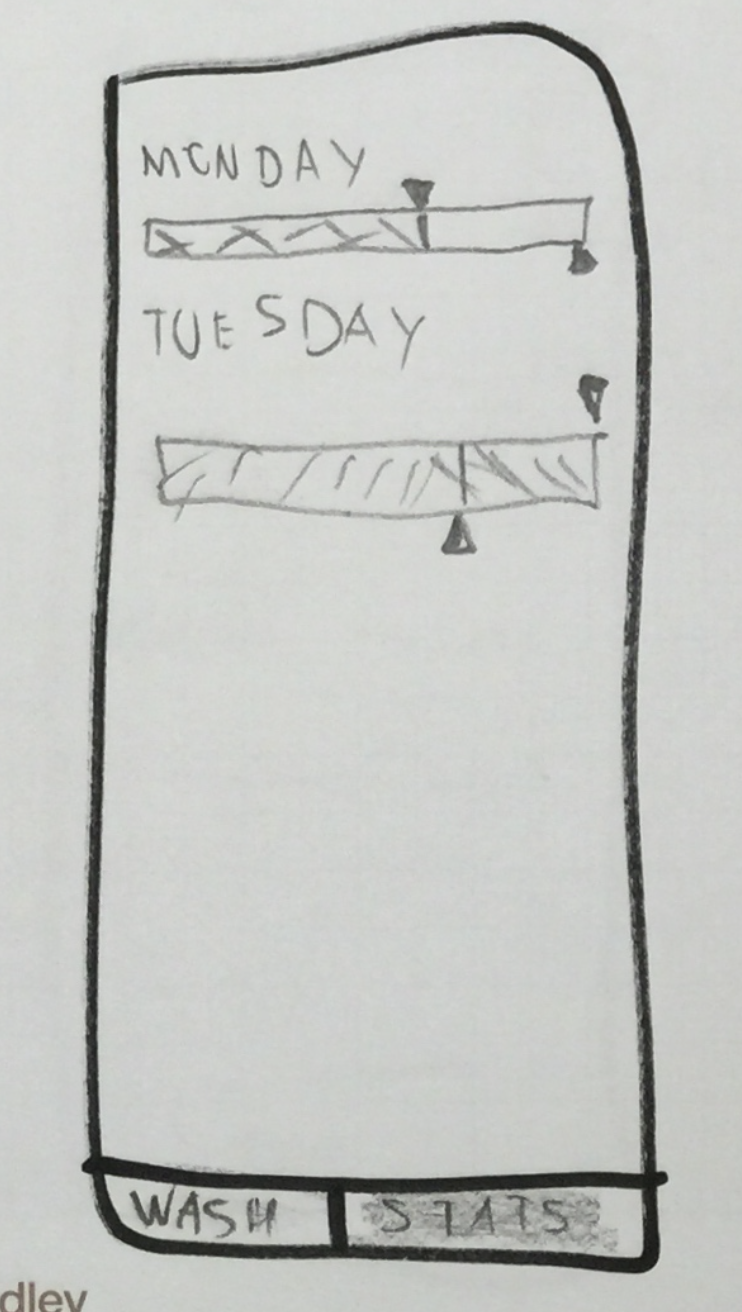 MONDAY
TUESDAY
WASH STATS
dley